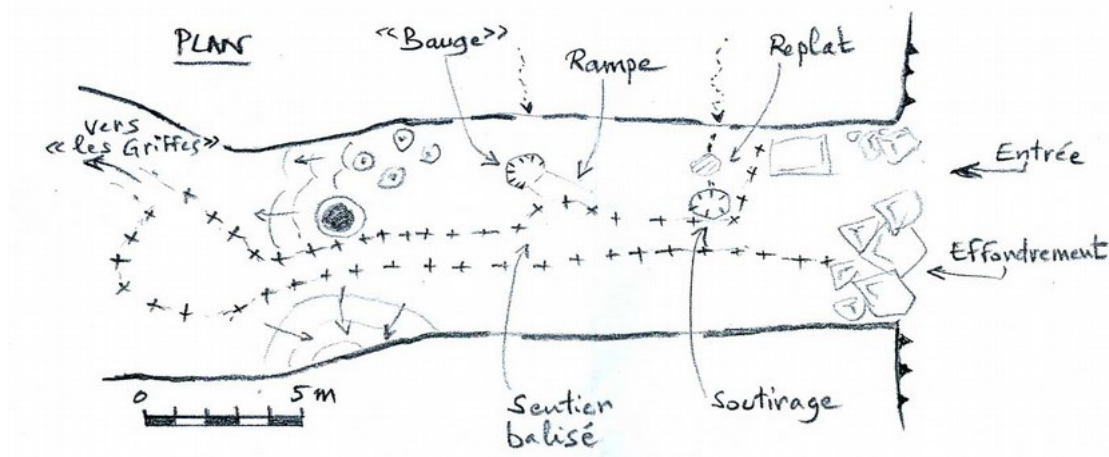 PLAN
«Bauge»
Rampe
Replat
vers
«les Griffes»
Entrée
Effondrement
0 5 m
Sentier
balisé
Soutirage